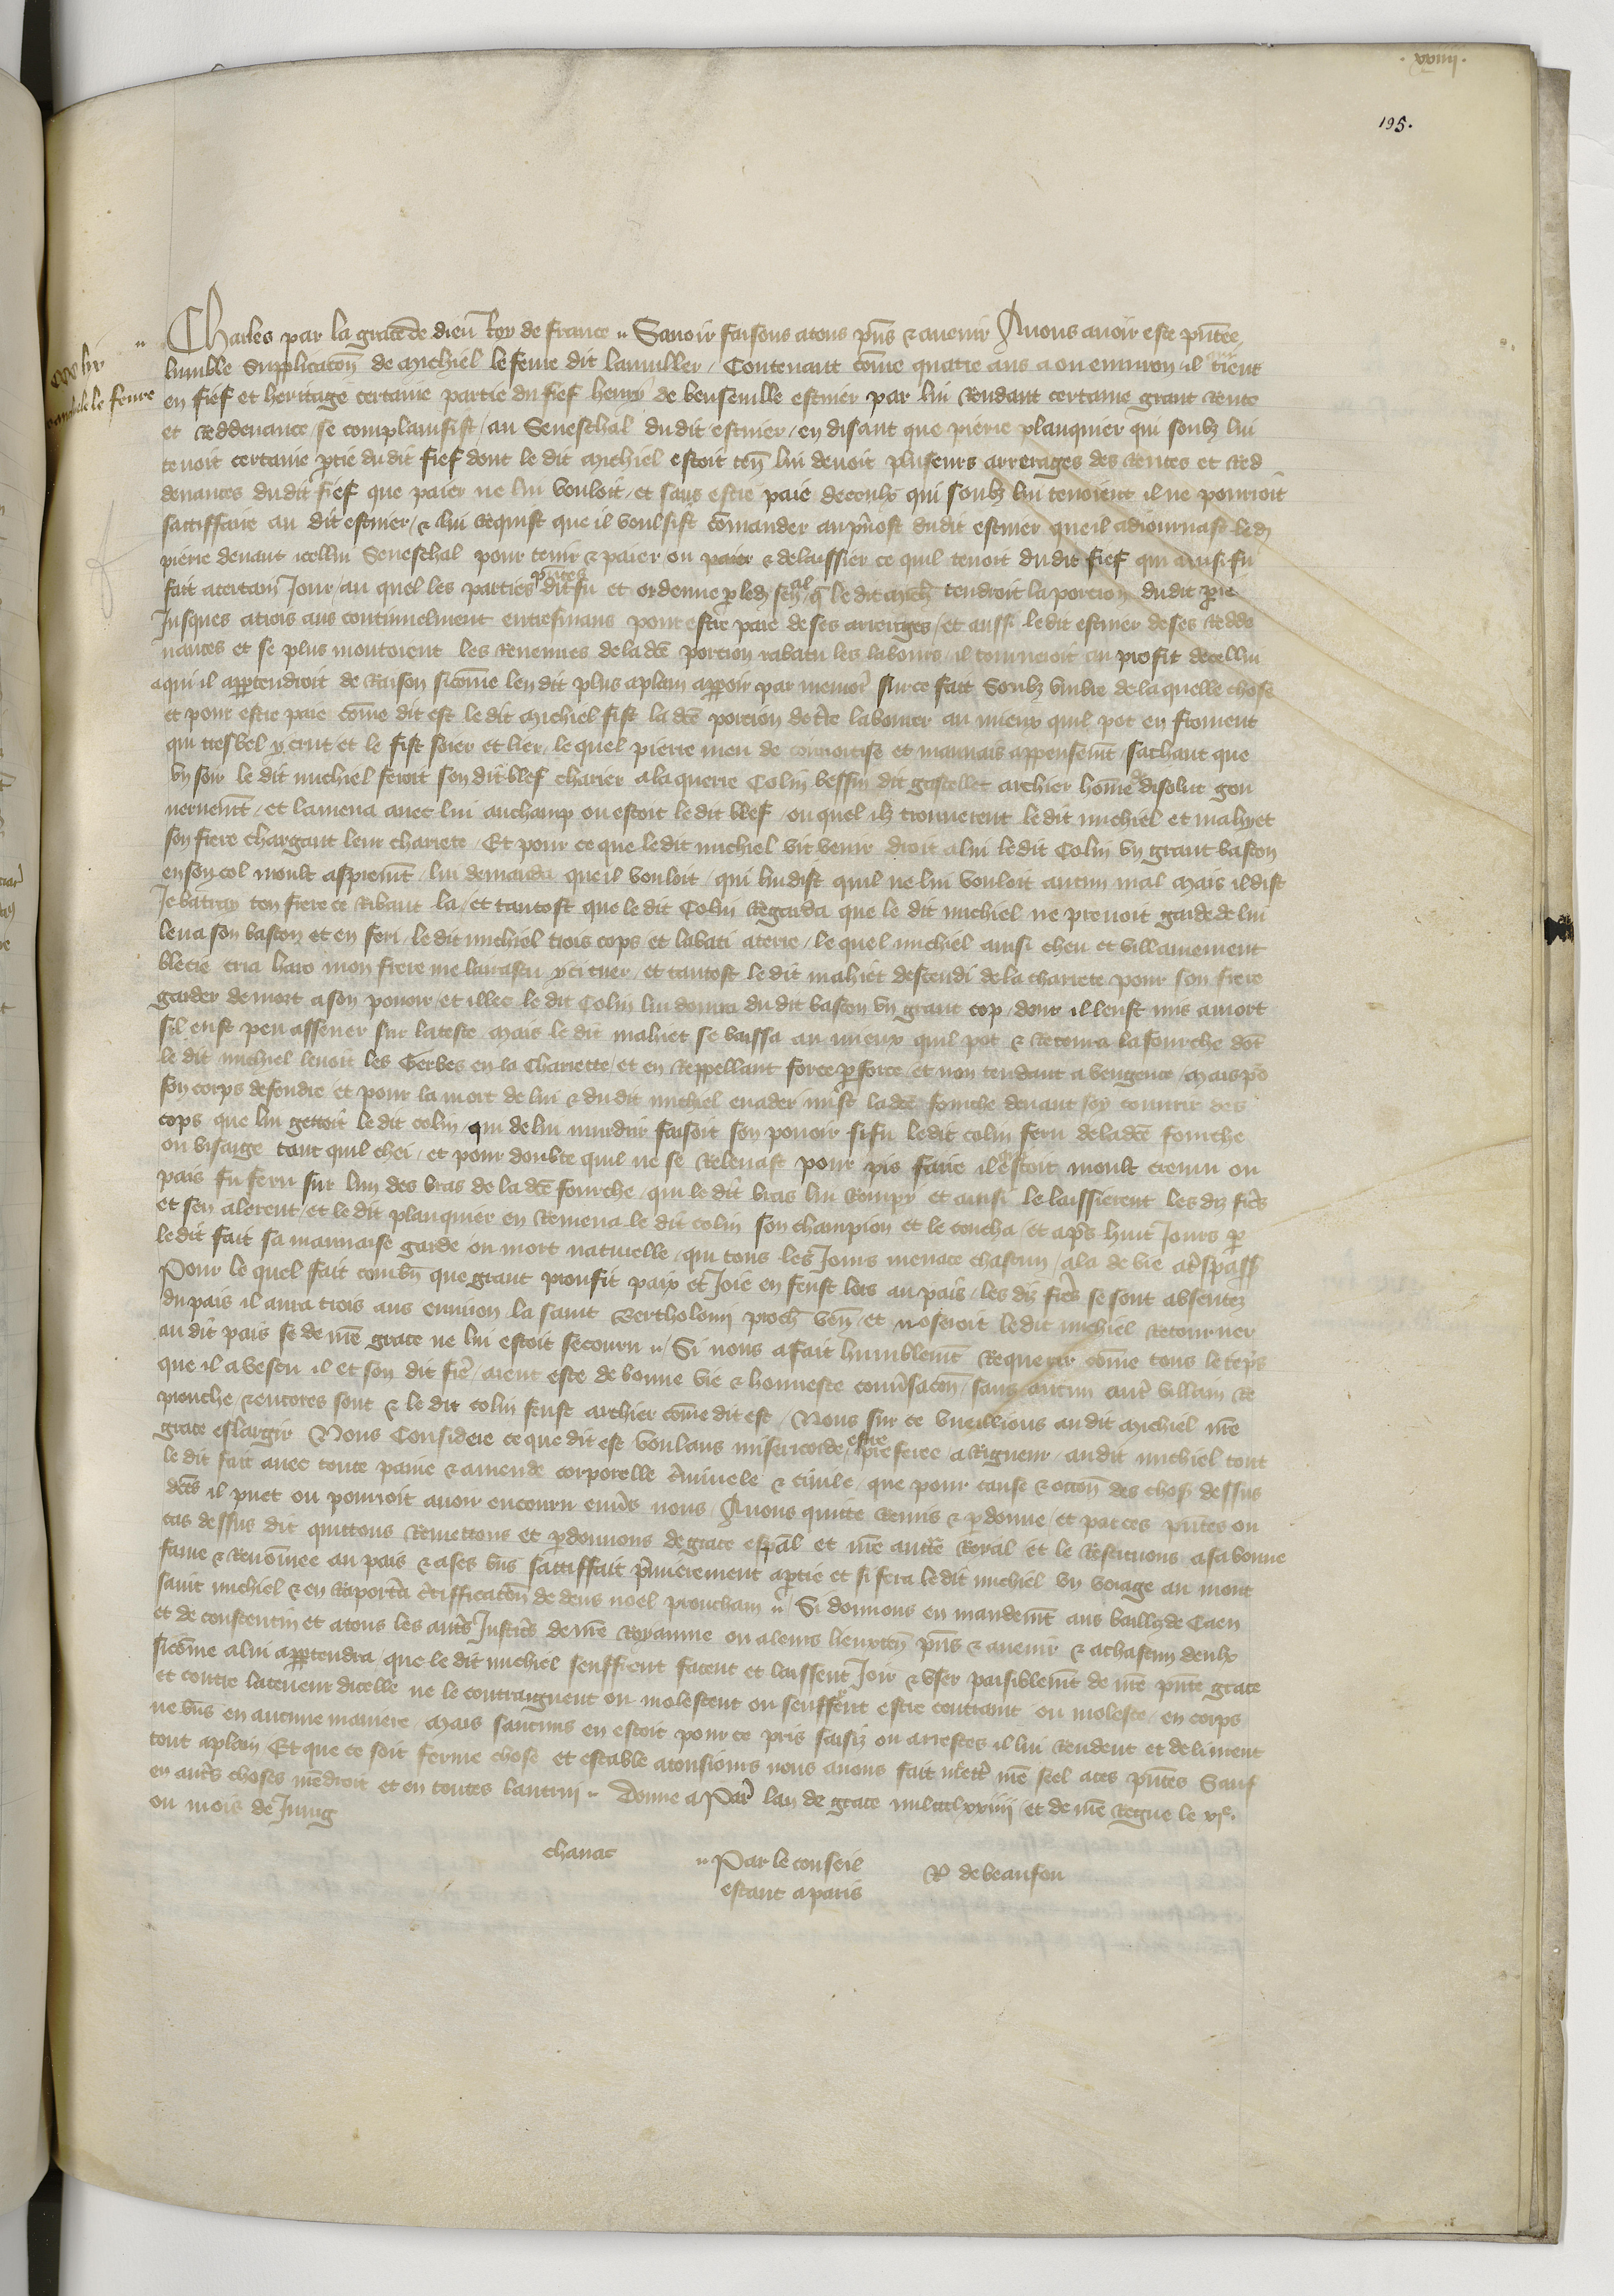 .xxiiij.
195.
Charles par la grace de dieu Roy de france .. Savoir faisons a tous pn̄s & avenir Avous avoir este pn̄tee
lumble supplicacōn de Michiel le fevre dit lauviller / Contenant cōme quatre ans a ou environ il tient
michiel le fevre
en fief et heritage certaine partie du fief henry de beuseville escuier par lui Rendant certaine grant Rente
et Reddevance / se complainsist / au Seneschal dudit escuier / en disant que pierre planquier qui soubz lui
tenoit certaine p̄tie dudit fief dont le dit Michiel estoit ten̄ lui devoit pluseurs arrerages des Rentes et Red
devances dudit fief que paier ne lui vouloit / et sans estre paie deceulx qui soubz lui tenoient il ne pourroit
sattiffaire au dit escuier / & lui Requist que il voulsist cōmander au p̄vost dudit escuier que il adiournast led̄
pierre devant icellui Seneschal pour tenir & paier ou paier & delaissier ce quil tenoit dudit fief qui ainsi fu
fait a certain Jour / au quel les parties pn̄tes dit fu et ordenne p̄ led̄ sen̄al q̄ le dit mich̄ tendroit la porcion dudit p̄re
Jusques a trois ans continuelment entresuians pour estre paie de ses arrerages / et aussi ledit escuier de ses Redde
vances et se plus montoient les Revenues de la dc̄e porcion rabatu les labours / il tourneroit au profit dicellui
a qui il app̄tendroit de Raison sicōme len dit plus aplain apparoir par memor̄ sur ce fait Soubz umbre de la quelle chose
et pour estre paie cōme dit est le dit Michiel fist la dc̄e porcion de t̄re labourer au mieux quil pot en froment
qui tresbel y crut et le fist soier et lier / le quel pierre meu de convoitise et mauvais appensem̄t / sachant que
un soir le dit michiel feroit son dit blef charier ala querre Colin bessin dit gastellet archier hōme de disolut gou
vernem̄t / et lamena avec lui au champ ou estoit le dit blef / ou quel ilz trouverent le dit michiel et mahyet
son frere chargant leur chariete / Et pour ce que ledit michiel vit venir droit a lui ledit Colin un grant baston
en son col moult asprem̄t / lui demanda que il vouloit / qui lui dist quil ne lui vouloit aucun mal Mais il dist
Je batray ton frere ce Ribaut la / et tantost que le dit Colin Regarda que le dit michiel ne prenoit garde de lui
leva son baston et en feri / le dit michiel trois cops / et labati a terre / le quel michiel ainsi cheu et villainement
blecie cria haro mon frere me lairas tu yci tuer / et tantost le dit mahiet descendi de la chariete pour son frere
garder de mort a son povoir / et illec le dit Colin lui donna du dit baston un grant cop / dont il leust mis a mort
sil eust peu assener sur la teste / Mais le dit mahiet se baissa au mieux quil pot & Retourna la fourche dōt
le dit michiel levoit les Gerbes en la Chariette / et en Reppellant force p̄ force / et non tendant a vengence / Mais po᷑
son corps defendre et pour la mort de lui & du dit michiel evader mist la dc̄e fourche devant soy couvrir des
cops que lui gettoit le dit colin / qui de lui murdrir faisoit son povoir si fu ledit colin feru de la dc̄e fourche
ou visaige tant quil chei / et pour doubte quil ne se Relevast pour pis faire il estoit moult cremu ou
pais fu feru sur lun des bras de la dc̄e fourche / qui le dit bras lui Rompy et ainsi le laissierent les dis fr̄es
et sen alerent / et le dit planquier en Remena le dit colin son champion et le coucha / et ap̄s huit Jours p̄
le dit fait sa mauvaise garde / ou mort naturelle / qui tous les Jours menace chascun / ala de vie a t̄spass̄
Pour le quel fait combn̄ que grant proufit paix et Joie en feust lors au pais / les dis fr̄es se sont absentez
du pais il aura trois ans environ la saint Bertholomi proch̄ ven̄ / et noseroit ledit michiel Retourner
au dit pais se de n̄re grace ne lui estoit secouru .. Si nous a fait humblem̄t Requerir cōme tous le tēps
que il a vescu il et son dit fr̄e / aient este de bonne vie & honneste conv̄sacōn / sans aucun aut̄ villain Re
prouche / & encores sont & le dit colin feust archier cōme dit est / Nous sur ce vueillions au dit Michiel n̄re
grace eslargir Nous Considere ce que dit est voulans misericorde estre preferee a Rigueur / audit michiel tout
le dit fait avec toute paine & amende corporelle c̄minele & civile / que pour cause & occōn des chos̄ dessus
dc̄es il puet ou pourroit avoir encouru env̄s nous / Avons quitte Remis & p̄donne / et par ces pn̄tes ou
cas dessus dit quittons Remettons et p̄donnons de grace esp̄al et n̄re auct̄e Royal et le Restituons a sa bonne
fame & Renōmee au pais & a ses bn̄s sattiffait p̄mierement a p̄tie et si fera le dit michiel un voiage au mont
saint michiel & en Raport̄a c̄tifficacōn de dens noel prouchain .. Si donnons en mandem̄t aus baillis de Caen
et de constentin et a tous les aut̄s Justic̄s de n̄re Royaume ou a leurs lieuxten̄ pn̄s & avenir & a chascun deulx
sicōme a lui app̄tendra / que le dit michiel seuffrent facent et laissent Joir & user paisiblem̄t de n̄re pn̄te grace
et contre la teneur dicelle ne le contraignent ou molestent ou seuffrent estre contraint ou moleste / en corps
ne bn̄s en aucune maniere / Mais saucuns en estoit pour ce pris saisiz ou arrestes il lui Rendent et delivrent
tout aplain Et que ce soit ferme chose et estable a tousiours nous avons fait mett̄e n̄re seel a ces pn̄tes Sauf
en aut̄s choses n̄re droit et en toutes lautrui .. Donne a Par̄ lan de grace mil ccclxxiiij et de n̄re Regne le xjᵉ.
ou mois de Juing
chanac
.. Par le conseil
estant a paris
R de beaufou